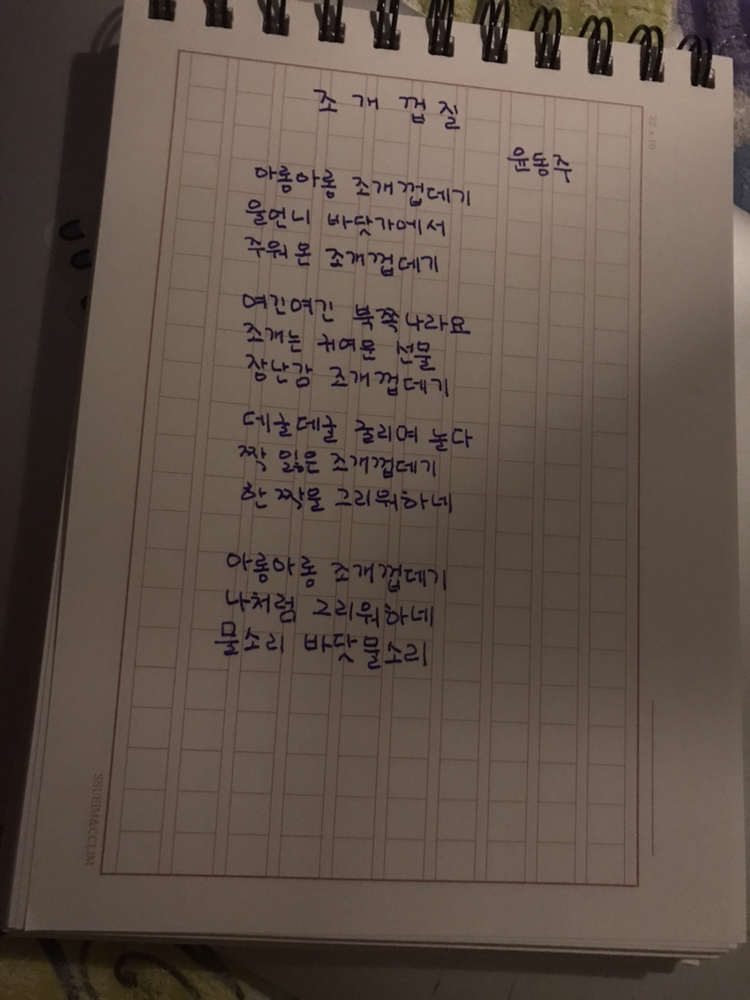 조개껍질
윤동주
아롱아롱 조개껍데기
울언니 바닷가에서
주워온 조개껍데기
여긴여긴 북쪽나라요
조개는 귀여운 선물
장난감 조개껍데기
데굴데굴 굴리며 놀다
짝 잃은 조개껍데기
한 짝을 그리워하네
아롱아롱 조개껍데기
나처럼 그리워하네
물소리 바닷물소리
20 x 10